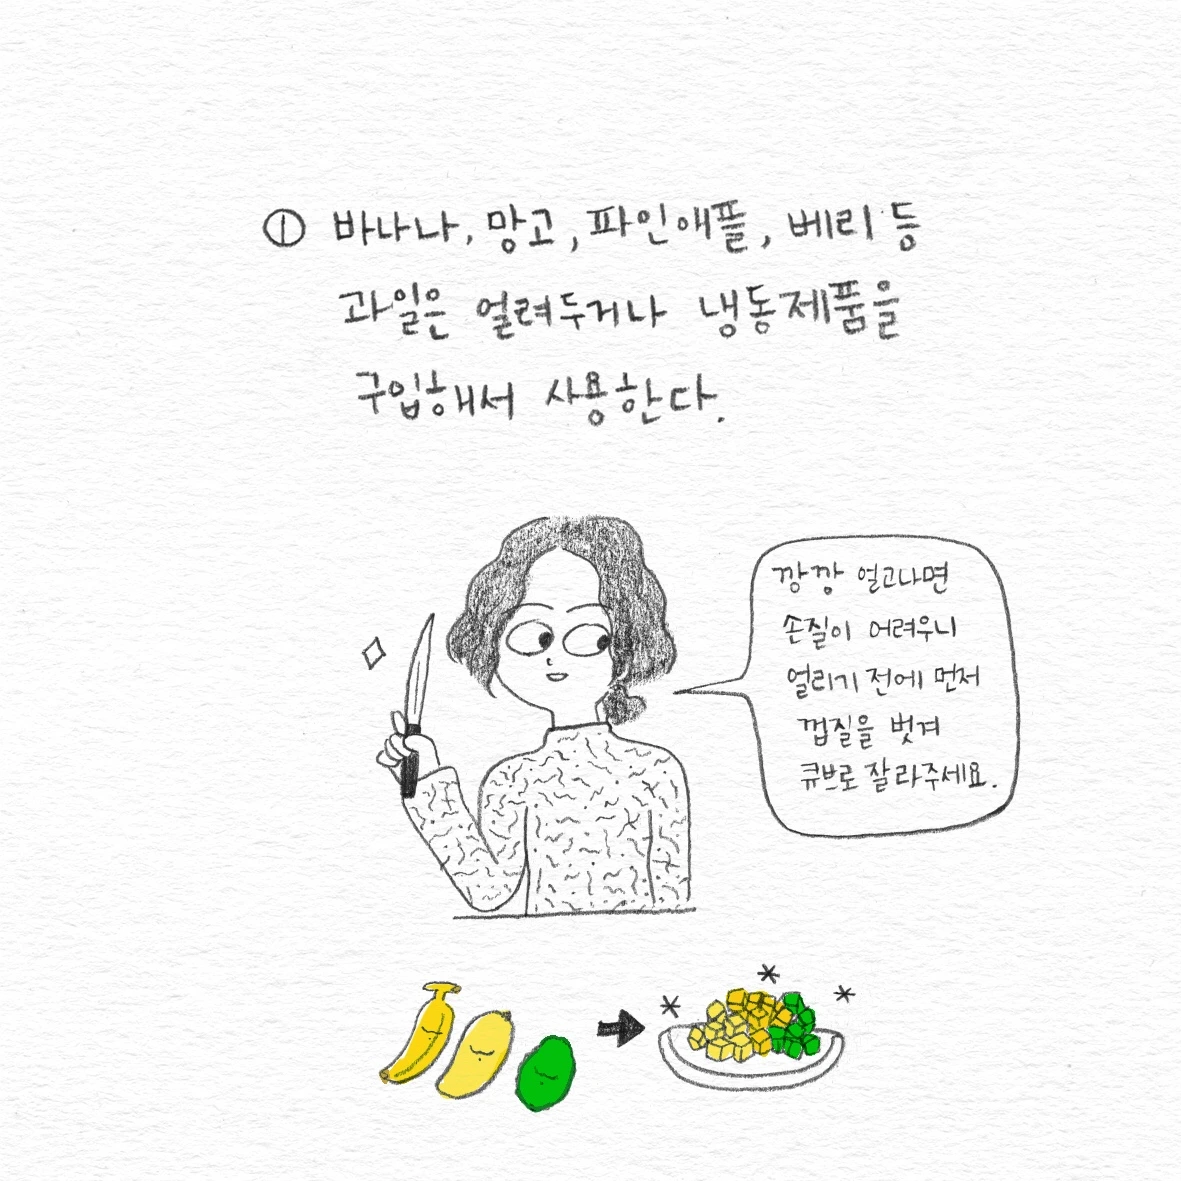 ① 바나나, 망고, 파인애플, 베리 등
과일은 얼려두거나 냉동제품을
구입해서 사용한다.
깡깡 얼고나면
손질이 어려우니
얼리기 전에 먼저
껍질을 벗겨
큐브로 잘라주세요.